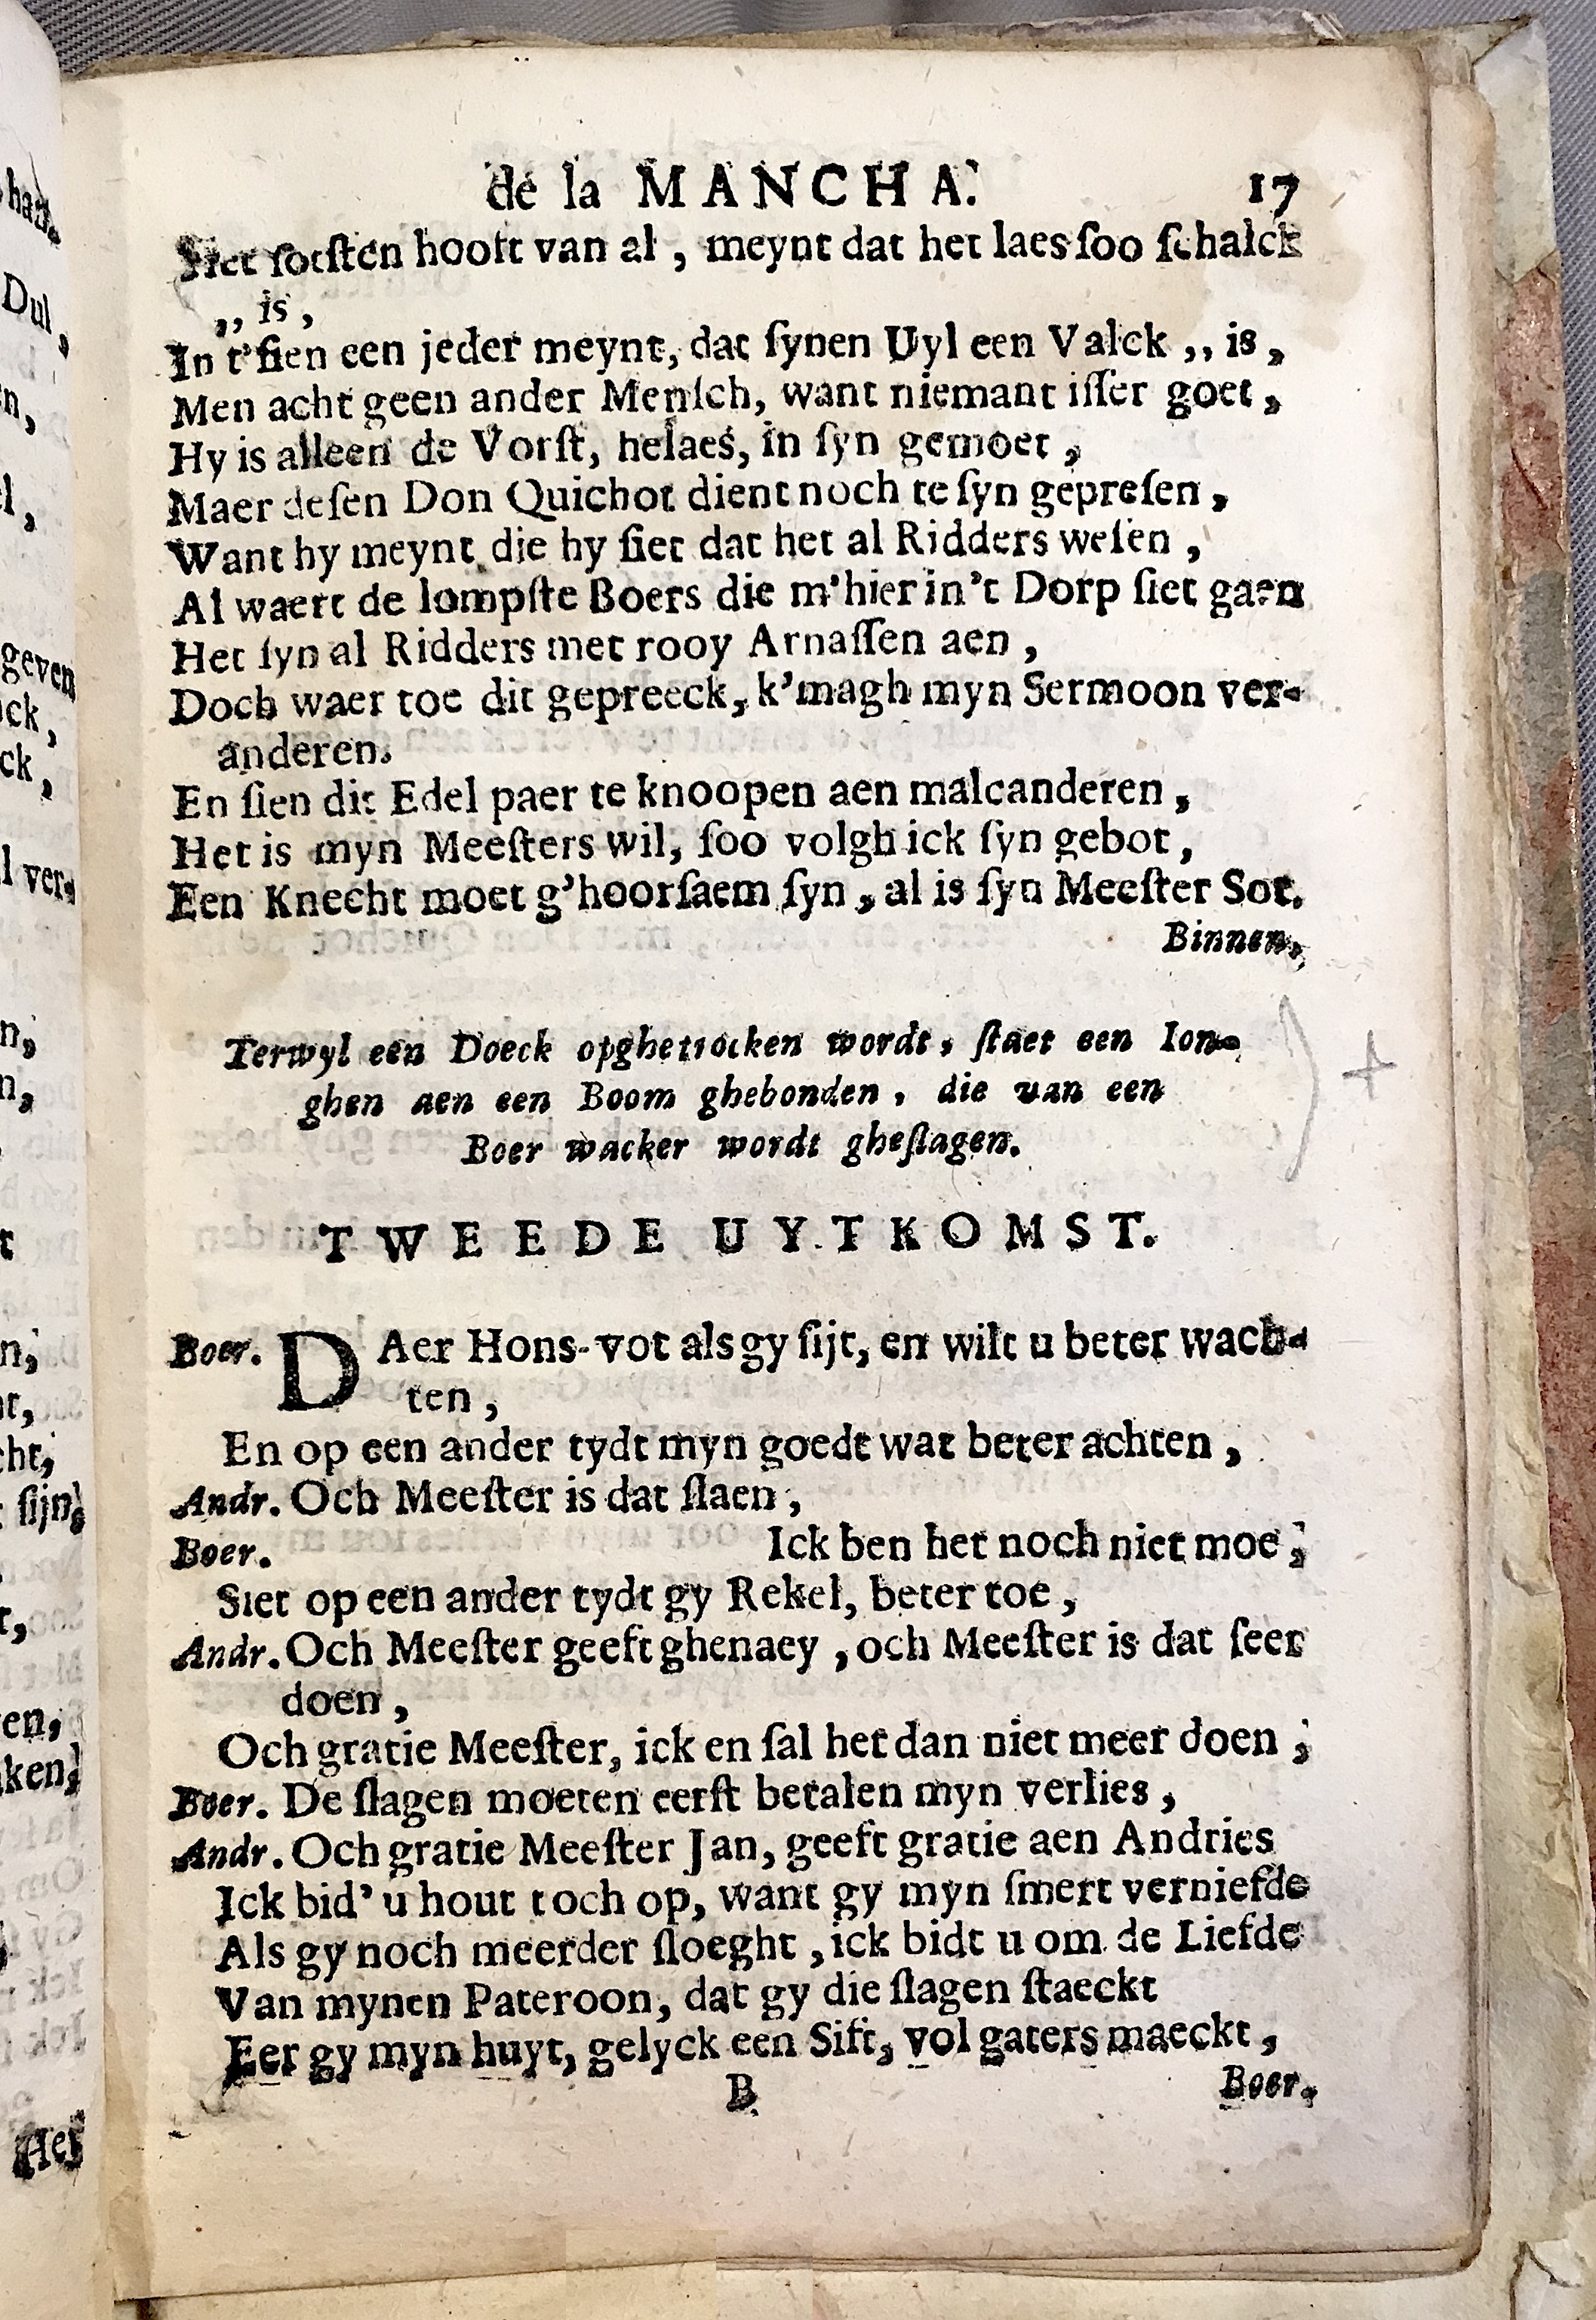 de la MANCHA. 17
Het sotsten hooft van al, meynt dat het laes soo schalck
,, is,
In t'sien een jeder meynt, dat synen Uyl een Valck ,, is,
Men acht geen ander Mensch, want niemant isser goet,
Hy is alleen de Vorst, helaes, in syn gemoet,
Maer desen Don Quichot dient noch te syn gepresen,
Want hy meynt die hy siet dat het al Ridders wesen,
Al waert de lompste Boers die m'hier in't Dorp siet gaen
Het syn al Ridders met rooy Arnassen aen,
Doch waer toe dit gepreeck, k'magh myn Sermoon ver-
anderen.
En sien dit Edel paer te knoopen aen malcanderen,
Het is myn Meesters wil, soo volgh ick syn gebot,
Een Knecht moet g'hoorsaem syn, al is syn Meester Sot.
Binnen.
Terwyl een Doeck opghetrocken wordt, staet een Ion-
ghen aen een Boom ghebonden, die van een
Boer wacker wordt gheslagen.
TWEEDE UYTKOMST.
Boer. DAer Hons-vot als gy sijt, en wilt u beter wach-
ten,
En op een ander tydt myn goedt wat beter achten,
Andr. Och Meester is dat slaen,
Boer. Ick ben het noch niet moe,
Siet op een ander tydt gy Rekel, beter toe,
Andr. Och Meester geeft ghenaey, och Meester is dat seer
doen,
Och gratie Meester, ick en sal het dan niet meer doen,
Boer. De slagen moeten eerst betalen myn verlies,
Andr. Och gratie Meester Jan, geeft gratie aen Andries
Ick bid' u hout toch op, want gy myn smert verniefde
Als gy noch meerder sloeght, ick bidt u om de Liefde
Van mynen Pateroon, dat gy die slagen staeckt
Eer gy myn huyt, gelyck een Sift, vol gaters maeckt,
B Boer.